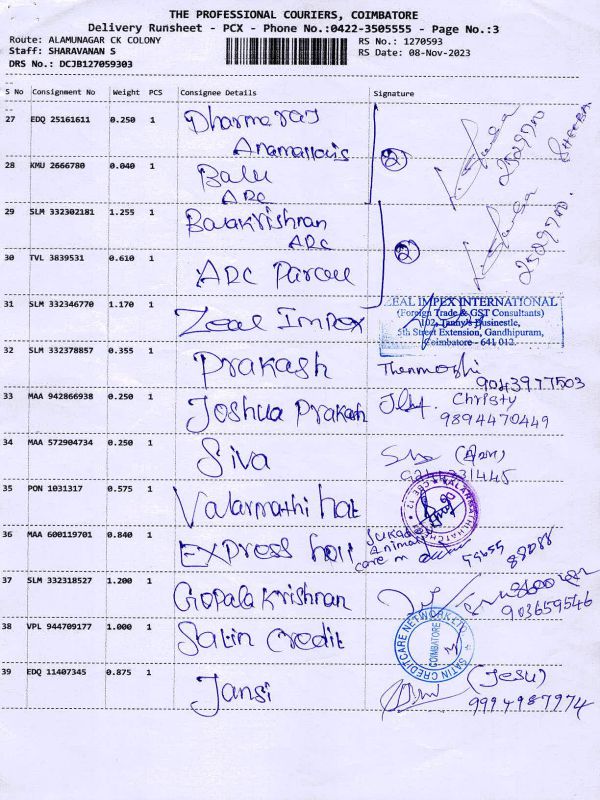 THE PROFESSIONAL COURIERS, COIMBATORE
Delivery Runsheet - PCX - Phone No.:0422-3505555 - Page No.:3
Route: ALAMUNAGAR CK COLONY RS No.: 1270593
Staff: SHARAVANAN S RS Date: 08-Nov-2023
DRS No.: DCJB127059303
S No Consignment No Weight PCS Consignee Details Signature
27 EDQ 25161611 0.250 1 Dharmaraj
2529700 SHEEBA
28 KMU 2666780 0.040 1 Balu
ADC
2
29 SLM 332302181 1.255 1 Balakrishnan
ADC
2529700
30 TVL 3839531 0.610 1 ADC Parcel
2
31 SLM 332346770 1.170 1 Zeal Impex
ZEAL IMPEX INTERNATIONAL
(Foreign Trade & GST Consultants)
102, Businestle,
5th Street Extension, Gandhipuram,
Coimbatore - 641 012.
32 SLM 332378857 0.355 1 Prakash Thenmozhi
9043977503
33 MAA 942866938 0.250 1 Joshua Prakash Christy
9894470449
34 MAA 572904734 0.250 1 Siva
35 PON 1031317 0.575 1 Valarmathi hat
36 MAA 600119701 0.840 1 Express
Animal
care
37 SLM 332318527 1.200 1 Gopala Krishnan
903659546
38 VPL 944709177 1.000 1 Satin Credit
SATIN CREDITCARE NETWORK LTD
COIMBATORE
39 EDQ 11407345 0.875 1 Jansi (Jesu)
9994987974